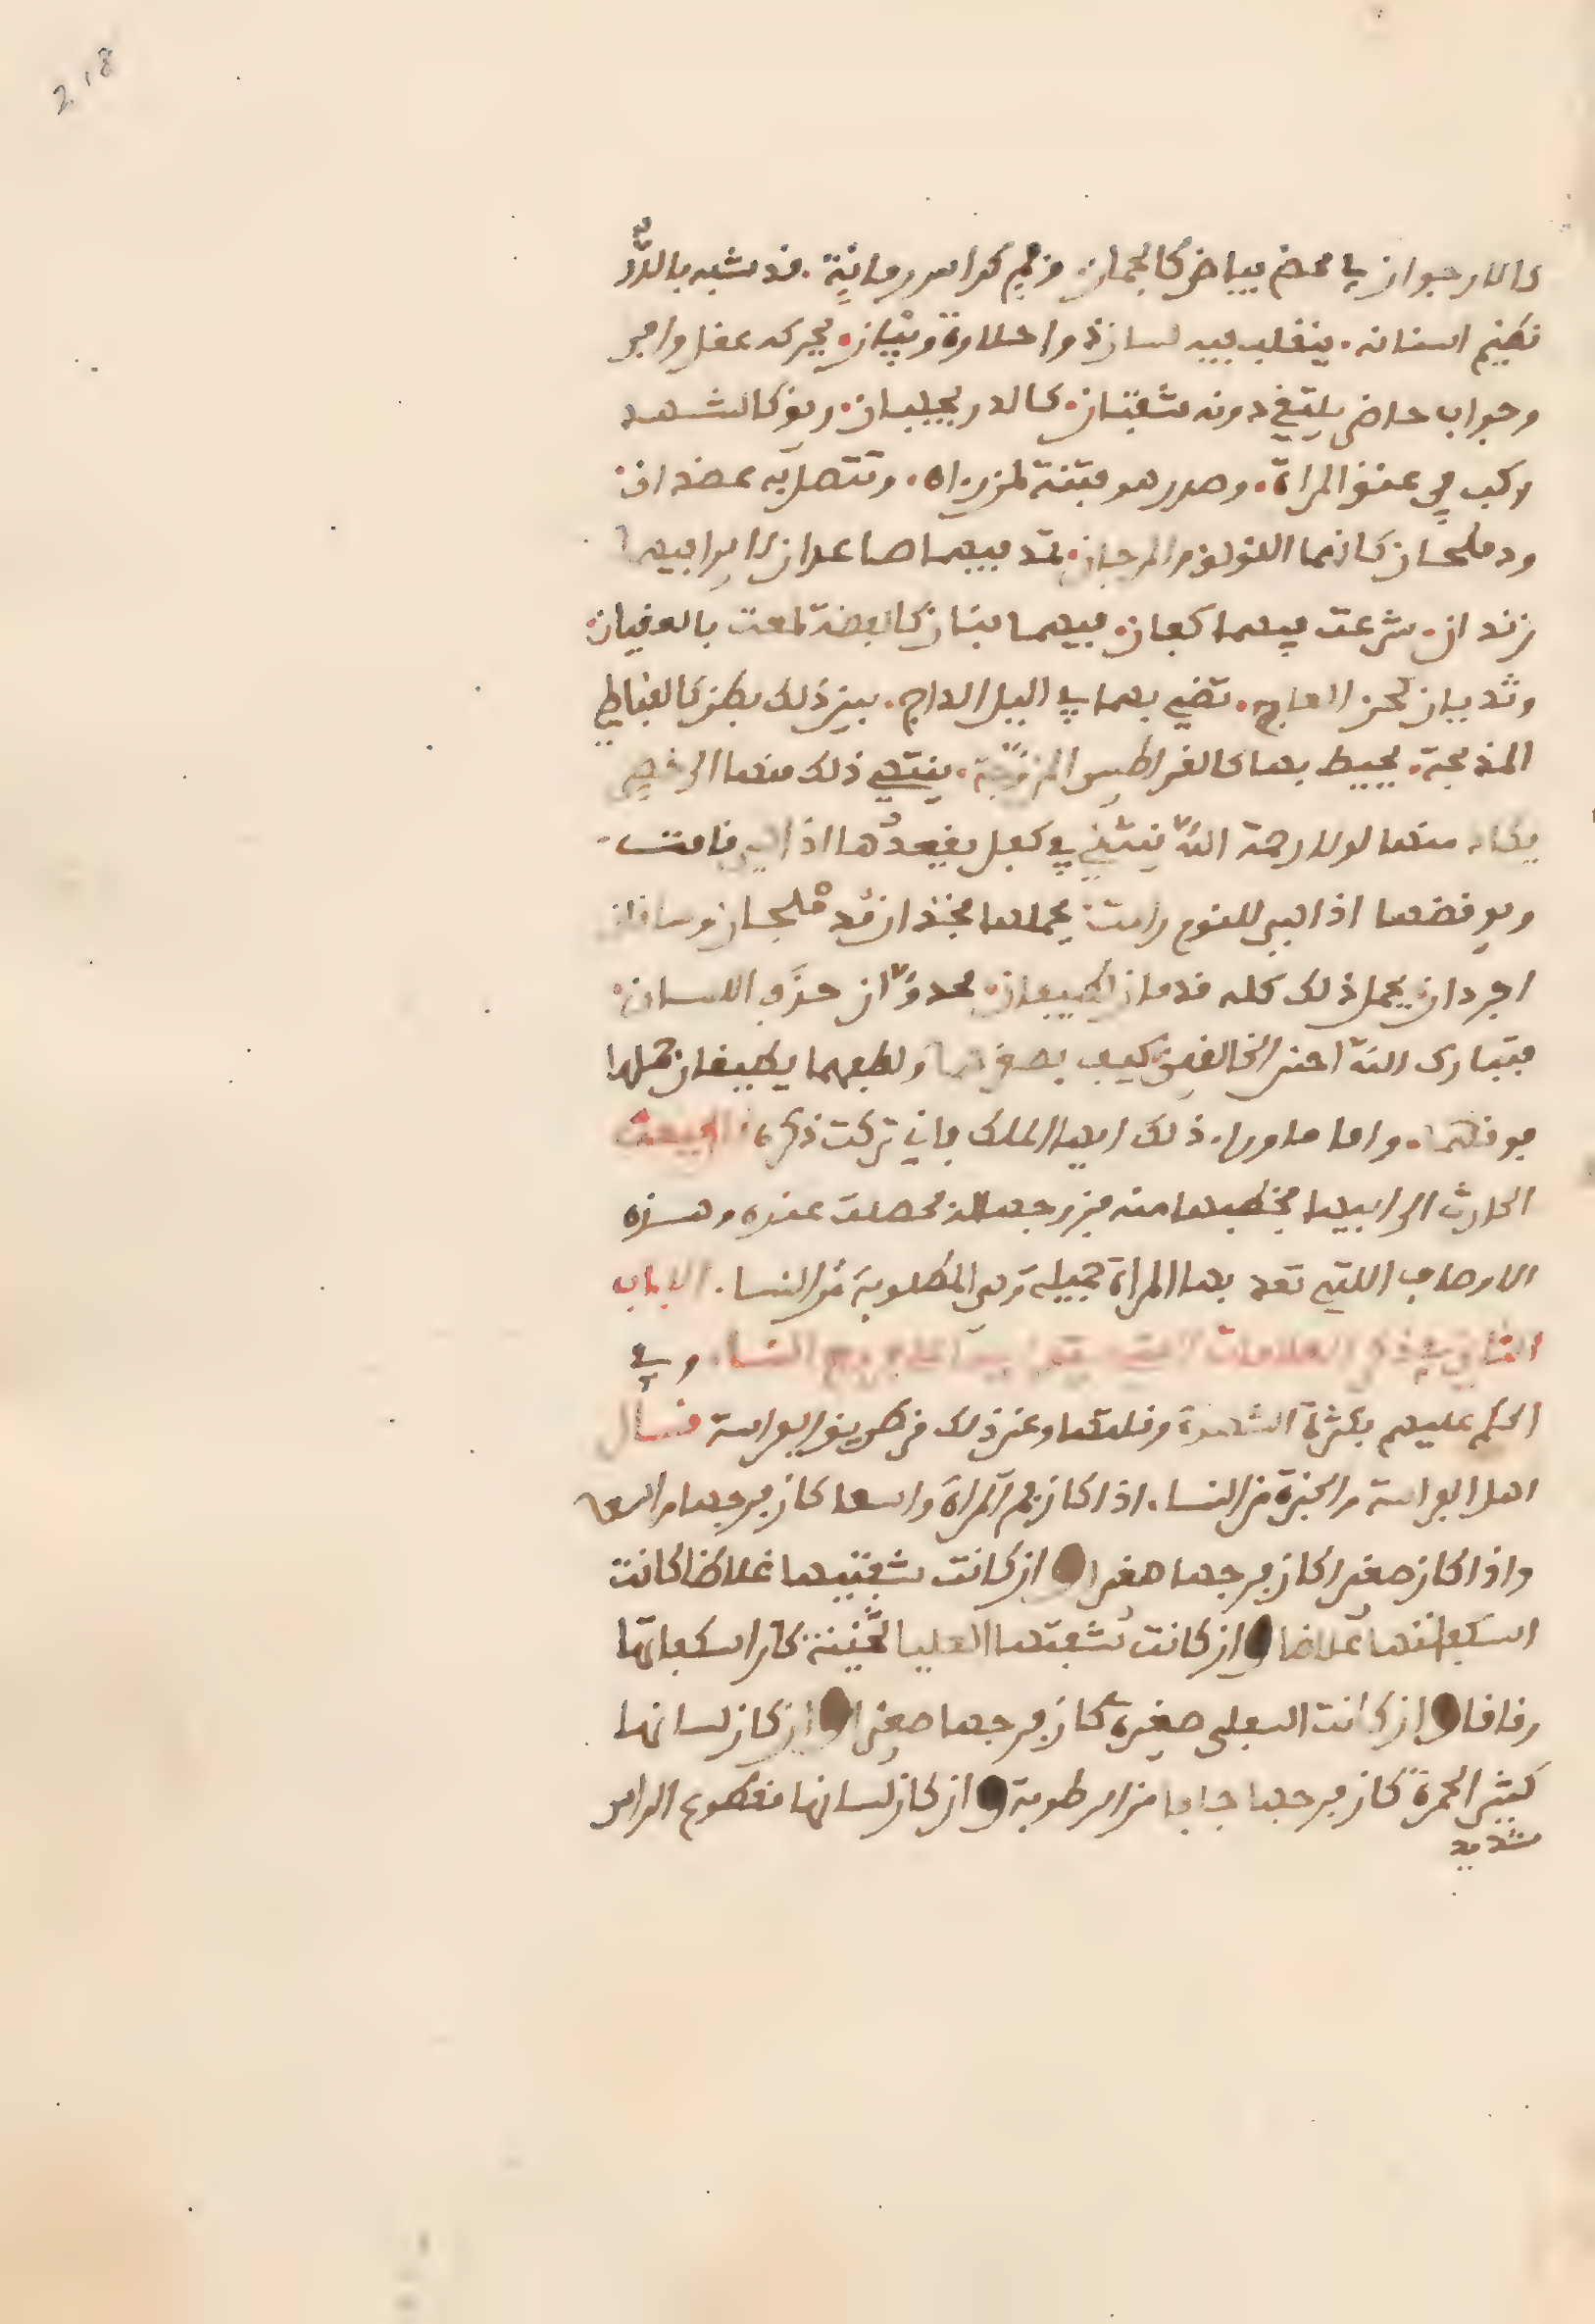 218
كالارجوان في محض بياض كالجمان وفم كراس رمانة. قد شبه بالدر في
نظيم اسنانه. يتقلب فيه لسان ذوا حلاوة وبيان. يحركه عقل وافر
وجواب حاضر يلتقي دونه شفتان كالدر يجلبان وريق كالشهد
ركب في عنق المراة. وصدر هو فتنة لمن يراه. وتتصل به عضدان
ودملجان كانهما اللولو والمرجان يمتد فيهما صاعدان لا يرا فيهما
زندان. شرعت فيهما كفان فيهما بنان كالفضة لمعت بالعقيان
وثديان كحق العاج. تضيء بهما في اليل الداج. بين ذلك بطن كالقباطي
المدمجة. يحيط بها كالقراطيس المزوجة. ينتهي ذلك منها الى خصر
يكاد منها لولا رحمة الله ينثني في كفل يقعدها اذا هي قامت
ويوقضها اذا هي للنوم رامت يحملها فخذان مدملجان وساقان
اجردان يحمل ذلك كله قدمان لطيفان محدوان حذو اللسان
فتبارك الله احسن الخالقين كيف بصغرهما ولطفهما يطيقان حملهما
فوقهما. واما ما ورا. ذلك ايها الملك فاني تركت ذكره فبعث
الحارث الى ابيها يخطبها منه فزوجها له فحصلت عنده وهذه
الاوصاف اللتي تعد بها المراة جميلة وهي المطلوبة من النسا. الباب
الثاني في ذكر العلامات التي يستدل بها على فروج النسا. وفي
الحكم عليهم بكثرة الشهوة وقلتها وغير ذلك من طريق الفراسة قال
اهل الفراسة والخبرة من النسا. اذا كان فم المراة واسعا كان فرجها واسعا
واذا كان صغيرا كان فرجها صغيرا وان كانت شفتيها غلاظا كانت
اسكفاتها غلاظا وان كانت شفتها العليا ثخينة كان اسكفاتها
رقاقا وان كانت السفلى صغيرة كان فرجها صغيرا وان كان لسانها
كثير الحمرة كان فرجها جافا من الرطوبة وان كان لسانها مقطوع الراس
شديد